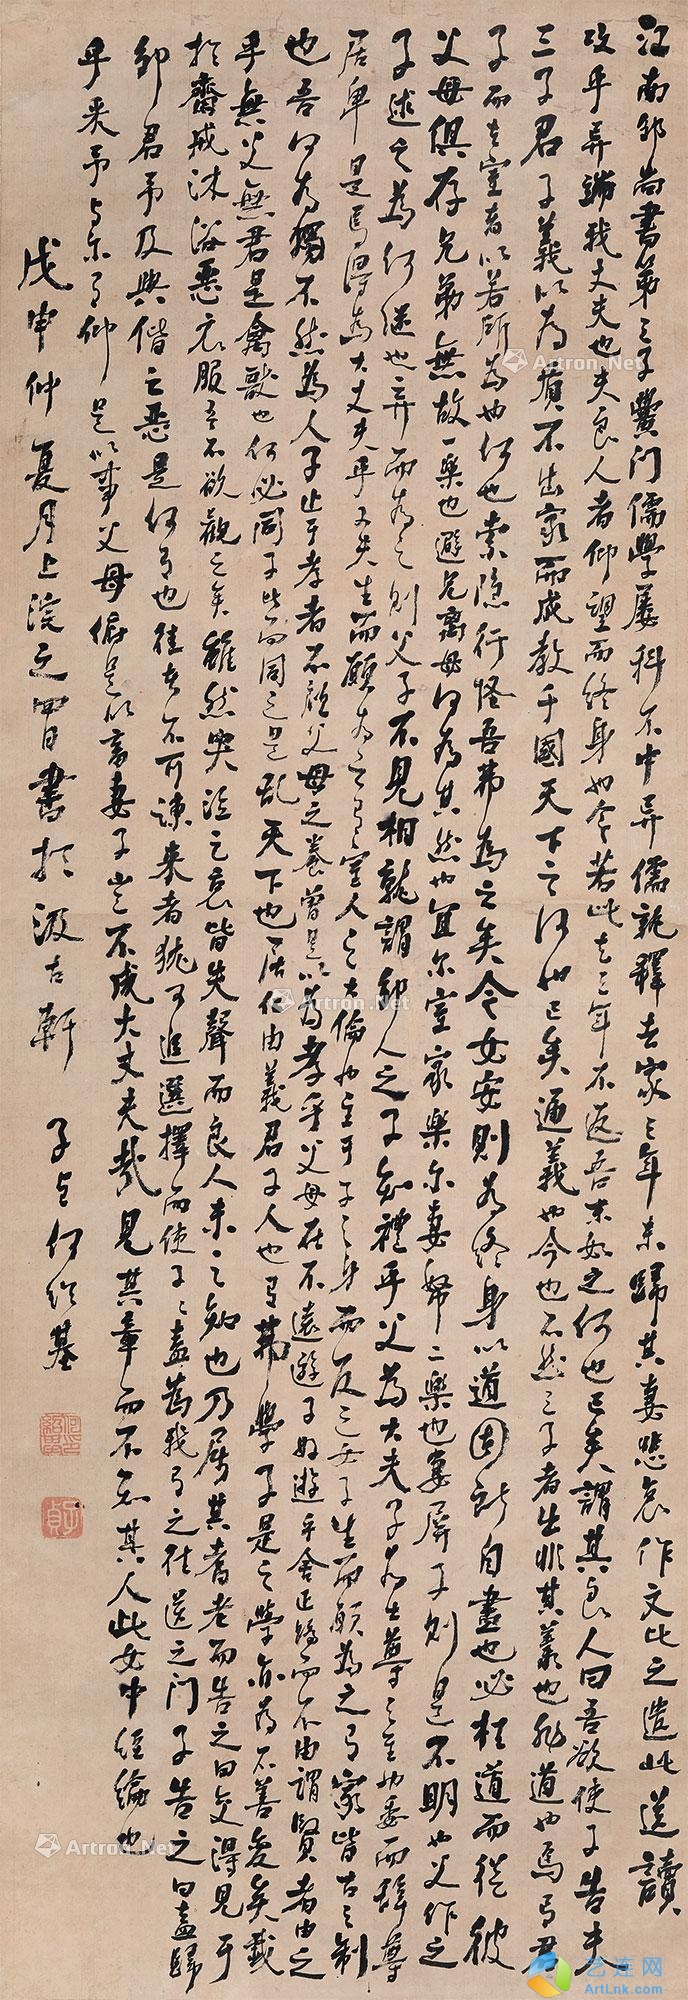 江南邹尚書第三子黉门儒學屡科不中弃儒就释去家三年未歸其妻悲哀作文比之遣此送讀
攻乎异端我丈夫也夫良人者仰望而终身也今若此去三年不返吾末如之何也已矣謂其良人曰吾欲使子告夫
三子君子義以為質不出家而成教于國天下之何如已矣通義也今也不然三子者出非其義也非道也焉有君
子而在室者以若所為也何也索隐行怪吾弗為之矣今女安則为终身以道固所自盡也必枉道而從彼
父母俱存兄弟無故一樂也避兄离母何为其然也宜尔室家樂尔妻帑二樂也妻屏子則是不明也父作之
子述之為何继也弃而为之則父子不見相就謂邹人之子知禮乎父為大夫子为士尊之至也委而辞尊
居卑是焉得為大丈夫乎丈夫生而願为之有室人之大倫也至于子之身而反之女子生而願為之有家皆古之制
也吾何为獨不然為人子止于孝者不顧父母之养曾是以為孝乎父母在不遠遊子好遊乎舍正路而不由謂賢者由之
乎無父無君是禽獸也何必同子比而同之是乱天下也居仁由義君子人也有弗學子是之學亦為不善变矣載
於齋戒沐浴恶衣服吾不欲觀之矣雖然哭泣之哀皆失聲而良人未之知也乃屬其耆老而告之曰交得見于
邹君予及與偕之恶是何有也往者不可諫来者猶可追選擇而使子子盍為我有之往送之门子告之曰盍歸
乎来予与尔有仰足以事父母俯足以畜妻子岂不成大丈夫哉見其章而不知其人此女中经綸也
戊申仲夏月上浣之四日書於汲古軒 子貞何绍基
Artron.Net
Artron.Net
Artron.Net
Artron.Net
艺连网
ArtLnk.Com